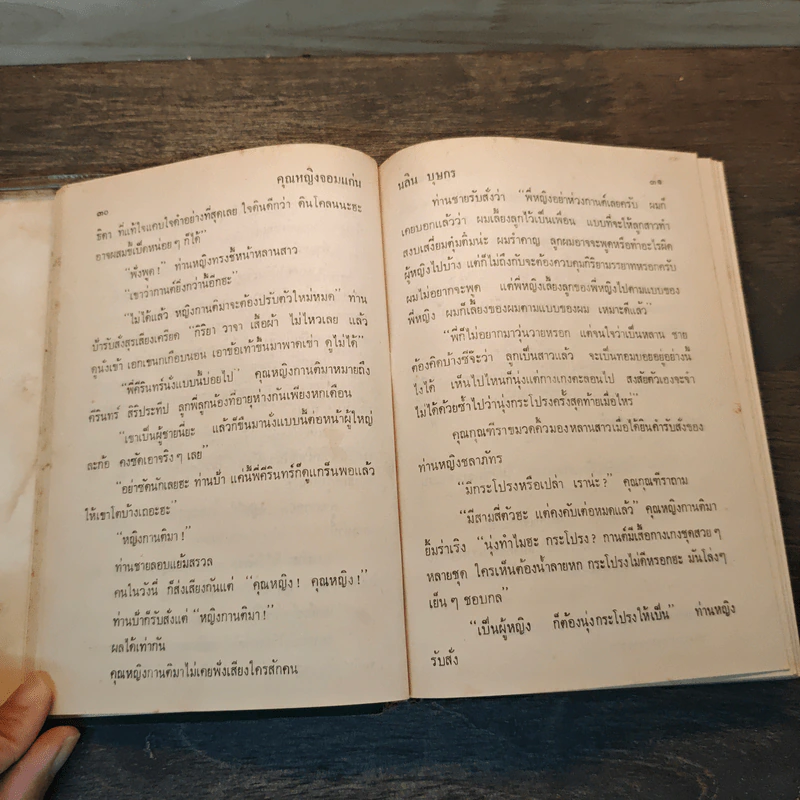 ๓๐
คุณหญิงจอมแก่น
ธิดา ที่แท้ใจแคบใจดำอย่างที่สุดเลย ใจดินดีกว่า ดินโคลนนะฮะ
อาจผสมขี้เป็ดหน่อย ๆ ก็ได้”
“ฟังพูด!” ท่านหญิงทรงชี้หน้าหลานสาว
“เขาว่ากานต์ยิ่งกว่านี้อีกฮะ”
“ไม่ได้แล้ว หญิงกานติมาจะต้องปรับตัวใหม่หมด” ท่าน
ป้ารับสั่งสุรเสียงเครียด “กิริยา วาจา เสื้อผ้า ไม่ไหวเลย แล้ว
ดูนั่งเข้า เอกเขนกเกือบนอน เอาข้อเท้าขึ้นมาพาดเข่า ดูไม่ได้”
“พี่คีรินทร์นั่งแบบนี้บ่อยไป” คุณหญิงกานติมาหมายถึง
คีรินทร์ สิริประทีป ลูกพี่ลูกน้องที่อายุห่างกันเพียงหกเดือน
“เขาเป็นผู้ชายนี่ยะ แล้วก็ขืนมานั่งแบบนี้ต่อหน้าผู้ใหญ่
ละก้อ คงซัดเอาจริง ๆ เลย”
“อย่าซัดนักเลยฮะ ท่านป้า แค่นี้พี่คีรินทร์ก็ดูแกร็นพอแล้ว
ให้เขาโตบ้างเถอะฮะ”
“หญิงกานติมา!”
ท่านชายลอบแย้มสรวล
คนในวังนี้ ก็ส่งเสียงกันแต่ “คุณหญิง! คุณหญิง!”
ท่านป้าก็รับสั่งแต่ “หญิงกานติมา!”
ผลได้เท่ากัน
คุณหญิงกานติมาไม่เคยฟังเสียงใครสักคน
นลิน บุษกร
๓๑
ท่านชายรับสั่งว่า “พี่หญิงอย่าห่วงกานต์เลยครับ ผมก็
เคยบอกแล้วว่า ผมเลี้ยงลูกไว้เป็นเพื่อน แบบที่จะให้ลูกสาวทำ
สงบเสงี่ยมตุ้มติ้มน่ะ ผมรำคาญ ลูกผมอาจจะพูดหรือทำอะไรผิด
ผู้หญิงไปบ้าง แต่ก็ไม่ถึงกับจะต้องควบคุมกิริยามรรยาทหรอกครับ
ผมไม่อยากจะพูด แต่พี่หญิงเลี้ยงลูกของพี่หญิงไปตามแบบของ
พี่หญิง ผมก็เลี้ยงของผมตามแบบของผม เหมาะดีแล้ว”
“พี่ก็ไม่อยากมาวุ่นวายหรอก แต่จนใจว่าเป็นหลาน ชาย
ต้องคิดบ้างซีจ๊ะว่า ลูกเป็นสาวแล้ว จะเป็นทอมบอยอยู่อย่างนี้
ไงได้ เห็นไปไหนก็นุ่งแต่กางเกงตะลอนไป สงสัยตัวเองจะจำ
ไม่ได้ด้วยซ้ำไปว่านุ่งกระโปรงครั้งสุดท้ายเมื่อไหร่”
คุณกุณฑีราขมวดคิ้วมองหลานสาวเมื่อได้ยินคำรับสั่งของ
ท่านหญิงชลาภัทร
“มีกระโปรงหรือเปล่า เราน่ะ?” คุณกุณฑีราถาม
“มีสามสี่ตัวฮะ แต่คงคับเต่อหมดแล้ว” คุณหญิงกานติมา
ยิ้มร่าเริง “นุ่งทำไมฮะ กระโปรง? กานต์มีเสื้อกางเกงชุดสวย ๆ
หลายชุด ใครเห็นต้องน้ำลายหก กระโปรงไม่ดีหรอกฮะ มันโล่งๆ
เย็น ๆ ชอบกล”
“เป็นผู้หญิง ก็ต้องนุ่งกระโปรงให้เป็น” ท่านหญิง
รับสั่ง